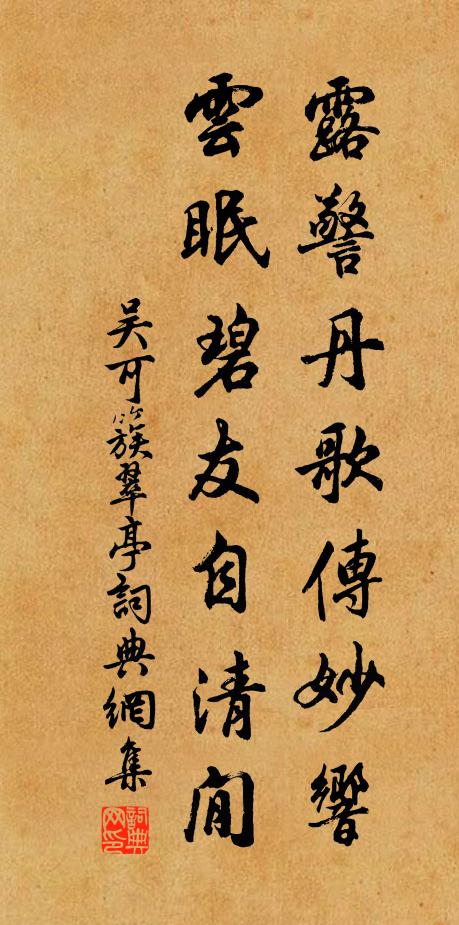 露警丹歌傳妙響
雲眠碧友自清閒
吴可簇翠亭詞典網集
詞典網印